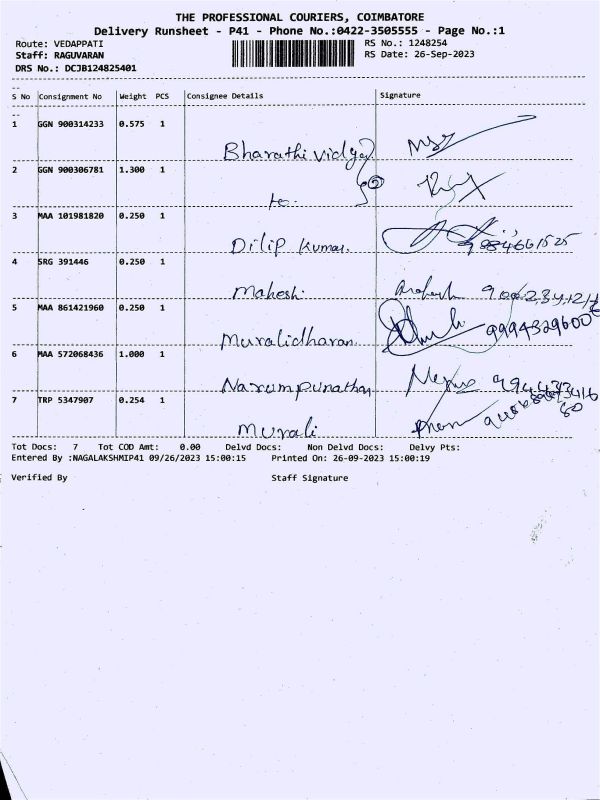 THE PROFESSIONAL COURIERS, COIMBATORE
Delivery Runsheet - P41 - Phone No.:0422-3505555 - Page No.:1
Route: VEDAPPATI RS No.: 1248254
Staff: RAGUVARAN RS Date: 26-Sep-2023
DRS No.: DCJB124825401
S No Consignment No Weight PCS Consignee Details Signature
1 GGN 900314233 0.575 1
Bharathi vidya
2 GGN 900306781 1.300 1
to.
3 MAA 101981820 0.250 1
Dilip Kumar. 9884661525
4 SRG 391446 0.250 1
Mahesh.
5 MAA 861421960 0.250 1
Muralidharan. 9994329600
6 MAA 572068436 1.000 1
Narumpunathan
7 TRP 5347907 0.254 1
Murali
Tot Docs: 7 Tot COD Amt: 0.00 Delvd Docs: Non Delvd Docs: Delvy Pts:
Entered By :NAGALAKSHMIP41 09/26/2023 15:00:15 Printed On: 26-09-2023 15:00:19
Verified By Staff Signature